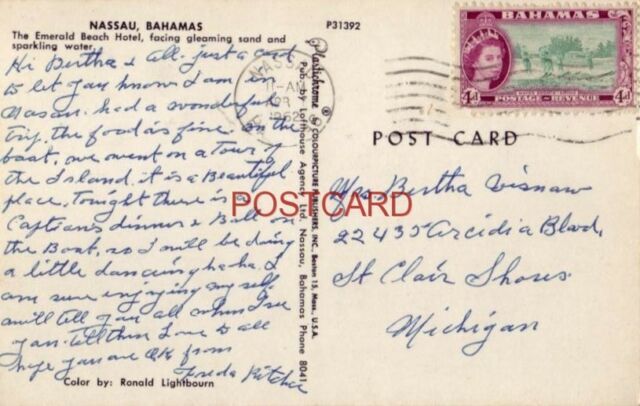 NASSAU, BAHAMAS
The Emerald Beach Hotel, facing gleaming sand and
sparkling water.
P31392
Hi Bertha & All. just a card
to let you know I am in
Nasau. had a wonderful
trip, the food is fine on the
boat, we went on a tour of
the Island. it is a Beautiful
place. Tonight there is a
Captain's dinner & Ball on
the Boat, so I will be doing
a little dancing ha ha. I
am sure enjoying my self.
will tell you all when I see
you. till then Love to all
hope you are OK from
Freda Ritchie
Color by: Ronald Lightbourn
Plastichrome ® by COLOURPICTURE PUBLISHERS, INC., Boston 15, Mass., U.S.A.
Pub. by Lofthouse Agency Ltd. Nassau, Bahamas Phone 8041
NASSAU
11-AM
1962
BAHAMAS
4d
4d
POSTAGE-REVENUE
POST CARD
POST CARD
Mrs Bertha
22435 Arcidia Blvd,
St Clair Shores
Michigan